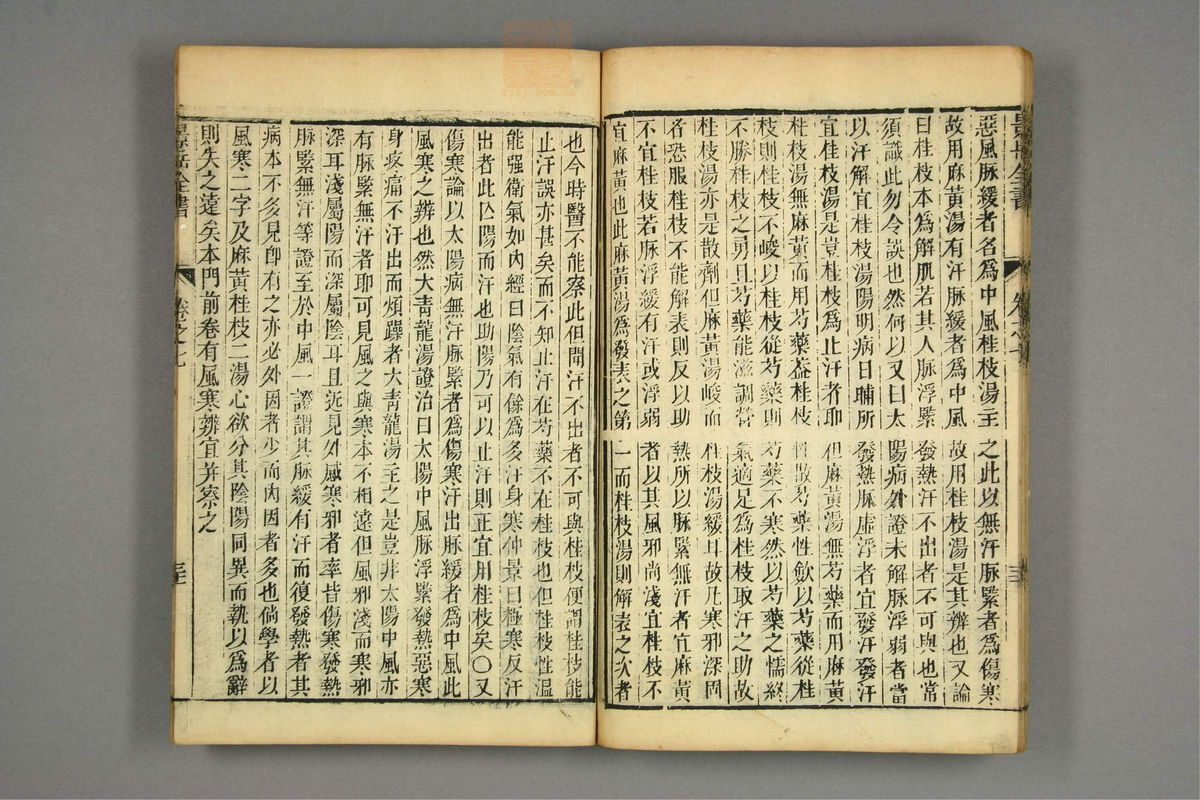 惡風脉緩者名爲中風桂枝湯主之此以無汗脉緊者爲傷寒
故用麻黃湯有汗脉緩者爲中風故用桂枝湯是其辨也又論
曰桂枝本爲解肌若其人脉浮緊發熱汗不出者不可與也常
須識此勿令誤也然何以又曰太陽病外證未解脉浮弱者當
以汗解宜桂枝湯陽明病日晡所發熱脉虛浮者宜發汗發汗
宜桂枝湯是豈桂枝爲止汗者耶但麻黃湯無芍藥而用麻黃
桂枝湯無麻黃而用芍藥葢桂枝性散芍藥性斂以芍藥從桂
枝則桂枝不峻以桂枝從芍藥則芍藥不寒然以芍藥之懦終
不勝桂枝之勇且芍藥能滋調營氣適足爲桂枝取汗之助故
桂枝湯亦是散劑但麻黃湯峻而桂枝湯緩耳故凡寒邪深固
者恐服桂枝不能解表則反以助熱所以脉緊無汗者宜麻黃
不宜桂枝若脉浮緩有汗或浮弱者以其風邪尚淺宜桂枝不
宜麻黃也此麻黃湯爲發表之第一而桂枝湯則解表之次者
景岳全書
卷之七
也今時醫不能察此但聞汗不出者不可與桂枝便謂桂枝能
止汗誤亦甚矣而不知止汗在芍藥不在桂枝也但桂枝性温
能强衛氣如內經曰陰氣有餘爲多汗身寒仲景曰極寒反汗
出者此亾陽而汗也助陽乃可以止汗則正宜用桂枝矣〇又
傷寒論以太陽病無汗脉緊者爲傷寒汗出脉緩者爲中風此
風寒之辨也然大青龍湯證治曰太陽中風脉浮緊發熱惡寒
身疼痛不汗出而煩躁者大青龍湯主之是豈非太陽中風亦
有脉緊無汗者耶可見風之與寒本不相遠但風邪淺而寒邪
深耳淺屬陽而深屬陰耳且近見外感寒邪者率皆傷寒發熱
脉緊無汗等證至於中風一證謂其脉緩有汗而復發熱者其
病本不多見卽有之亦必外因者少而內因者多也倘學者以
風寒二字及麻黃桂枝二湯心欲分其陰陽同異而執以爲辭
則失之遠矣本門前卷有風寒辨宜并察之
景岳全書
卷之七